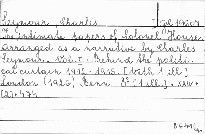 Seymour Charles
The Intimate papers of Colonel House
arranged as a narrative by Charles
Seymour. Vol. I. Behind the politi-
cal curtain 1912-1915. [With ill.]
London (1926) Benn 8° [ill.] XXIV+
(2)+471